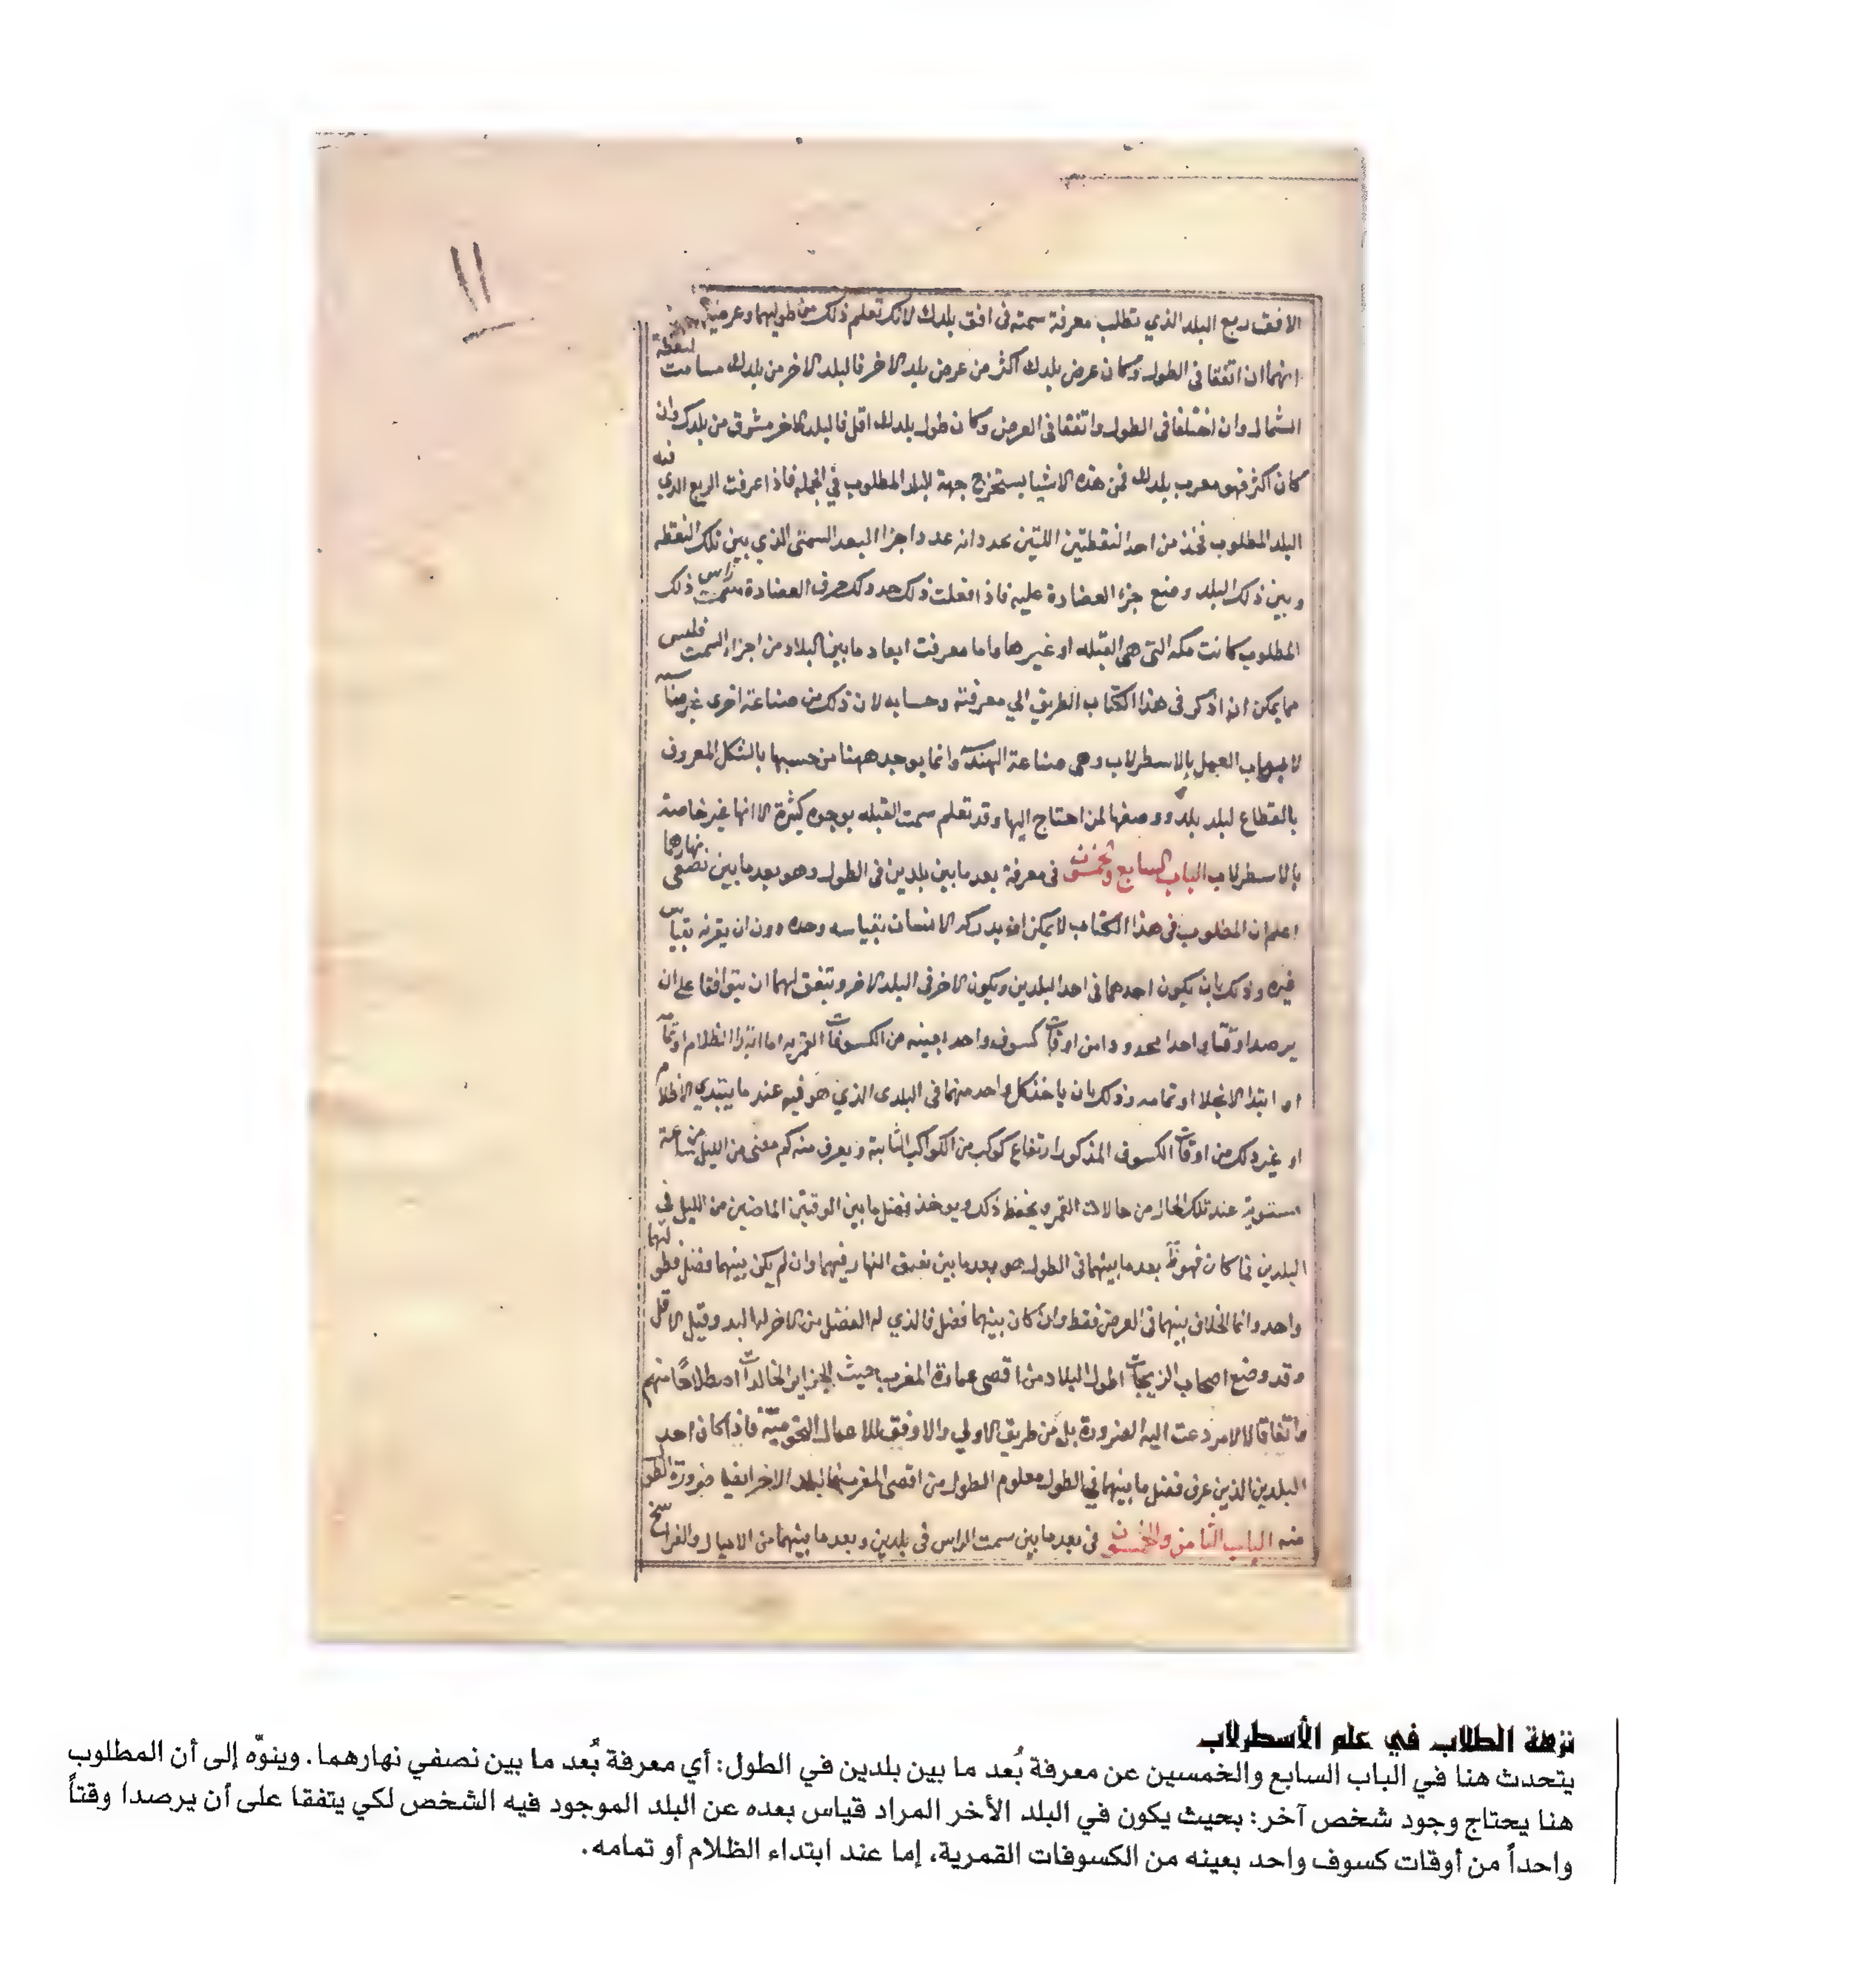 ١١
الافق ربع البلد الذي تطلب معرفة سمته في افق بلدك لانك تعلم ذلك من طوليهما وعرضيهما
انهما ان اتفقا في الطول وكان عرض بلدك اكثر من عرض بلد الاخر فالبلد الاخر من بلدك مسامت لنقطة
الشمال وان اختلفا في الطول واتفقا في العرض وكان طول بلدك اقل فالبلد الاخر مشرق من بلدك وان
كان اكثر فهو مغرب بلدك فمن هذه الاشيا يستخرج جهة البلد المطلوب في الجملة فاذا عرفت الربع الذي فيه
البلد المطلوب فخذ من احد النقطتين اللتين يحدوانه عدد اجزا البعد السمتى الذي بين تلك النقطه
وبين ذلك البلد وضع جزء العضادة عليه فاذا فعلت ذلك حد ولك حرف العضادة سمت راس ذلك
المطلوب كانت مكه التى هي القبله او غيرها واما معرفت ابعاد ما بين البلاد من اجزاء السمت فليس
مما يمكن ان اذكر في هذا الكتاب الطريق الي معرفته وحسابه لان ذلك من صناعة اخرى غير
العمل بالاسطرلاب وهي صناعة الهندسة وانما يوجد ههنا من حسبها بالشكل المعروف
بالقطاع لبلد بلد ووصفها لمن احتاج اليها وقد تعلم سمت القبله بوجوه كثيرة الا انها غير خاصة
بالاسطرلاب الباب السابع والخمسون في معرفة بعد ما بين بلدين في الطول وهو بعد ما بين نصفى نهارهما
اعلم ان المطلوب في هذا الكتاب لا يمكن ان يدركه الانسان بقياسه وحده دون ان يقرنه بقياس
غيره وذلك بان يكون احدهما في احد البلدين ويكون الاخر في البلد الاخر ويتفق لهما ان يتوافقا على ان
يرصدا وقتا واحدا محدودا من اوقات كسوف واحد بعينه من الكسوفات القمريه اما ابتدا الظلام او تمامه
او ابتدا الانجلا او تمامه وذلك بان ياخذ كل واحد منهما في البلدى الذي هو فيه عند ما يبتدي الاظلام
او غير ذلك من اوقات الكسوف المذكور ارتفاع كوكب من الكواكب الثابتة ويعرف منه كم مضى من الليل من ساعة
مستوية عند تلك الحال من حالات القمر ويحفظ ذلك ويوخذ فضل ما بين الوقتين الماضيين من الليل في
البلدين فما كان فهو بعد ما بينهما في الطول هو بعد ما بين نصف النهار فيهما وان لم يكن بينهما فضل فطولهما
واحد وانما الخلاف بينهما في العرض فقط وان كان بينهما فضل فالذي له الفضل من الاخر
وقد وضع اصحاب الزيجات اطول البلاد من اقصى عمارة المغرب حيث الجزاير الخالدات اصطلاحا منهم
واتفاقا لا لامر دعت اليه الضرورة بل من طريق الاولي والاوفق للاعمال النجومية فاذا كان احد
البلدين الذين عرف فضل ما بينهما في الطول معلوم الطول من اقصى المغرب فالبلد الاخر ايضا ضرورة الطول
منه الباب الثامن والخمسون في بعد ما بين سمت الراس في بلدين وبعد ما بينهما من الاميال والفراسخ
نزهة الطلاب في علم الأسطرلاب
يتحدث هنا في الباب السابع والخمسين عن معرفة بُعد ما بين بلدين في الطول: أي معرفة بُعد ما بين نصفي نهارهما. وينوّه إلى أن المطلوب
هنا يحتاج وجود شخص آخر: بحيث يكون في البلد الأخر المراد قياس بعده عن البلد الموجود فيه الشخص لكي يتفقا على أن يرصدا وقتاً
واحداً من أوقات كسوف واحد بعينه من الكسوفات القمرية، إما عند ابتداء الظلام أو تمامه.